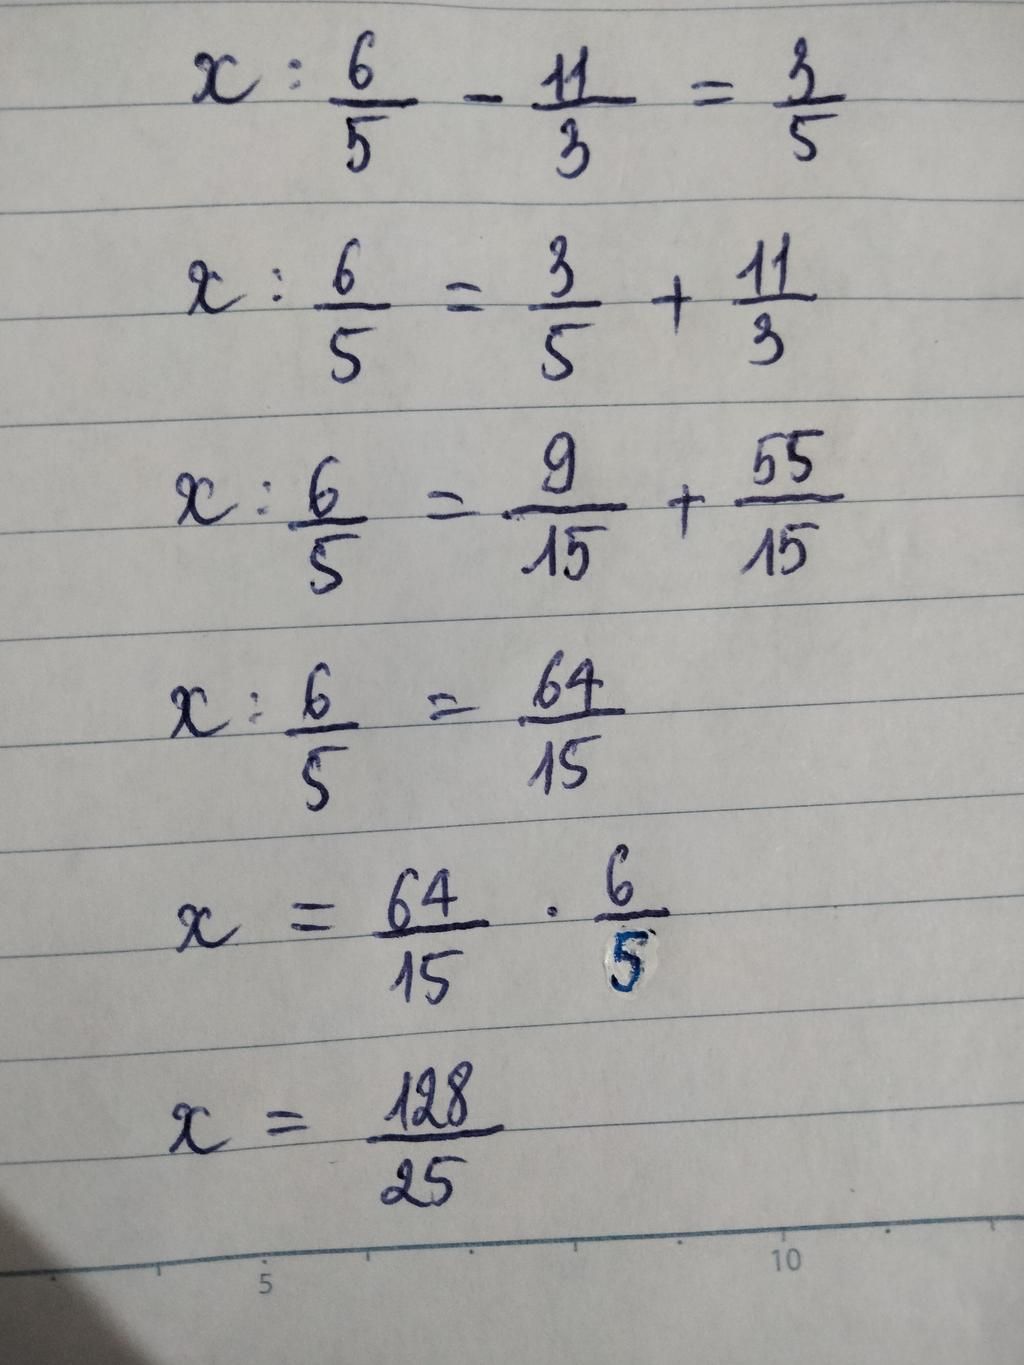 x : 6/5 - 11/3 = 3/5
x : 6/5 = 3/5 + 11/3
x : 6/5 = 9/15 + 55/15
x : 6/5 = 64/15
x = 64/15 . 6/5
x = 128/25
5 10